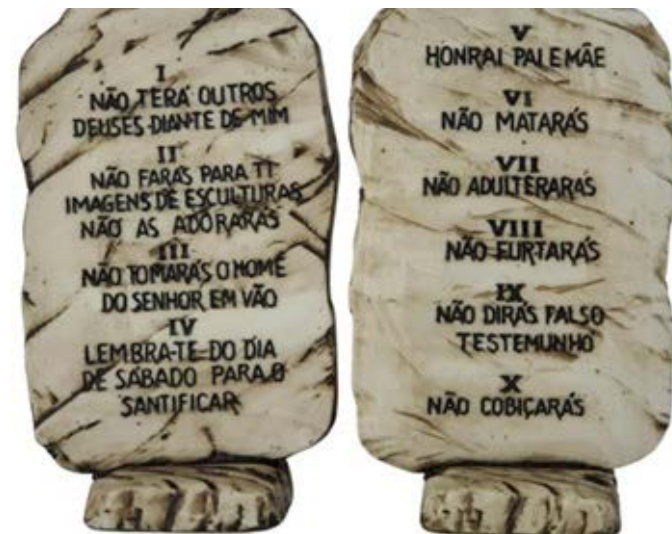 I
NÃO TERÁ OUTROS
DEUSES DIANTE DE MIM
II
NÃO FARÁS PARA TI
IMAGENS DE ESCULTURAS
NÃO AS ADORARÁS
III
NÃO TOMARÁS O NOME
DO SENHOR EM VÃO
IV
LEMBRA-TE DO DIA
DE SÁBADO PARA O
SANTIFICAR
V
HONRAI PAI E MÃE
VI
NÃO MATARÁS
VII
NÃO ADULTERARÁS
VIII
NÃO FURTARÁS
IX
NÃO DIRÁS FALSO
TESTEMUNHO
X
NÃO COBIÇARÁS